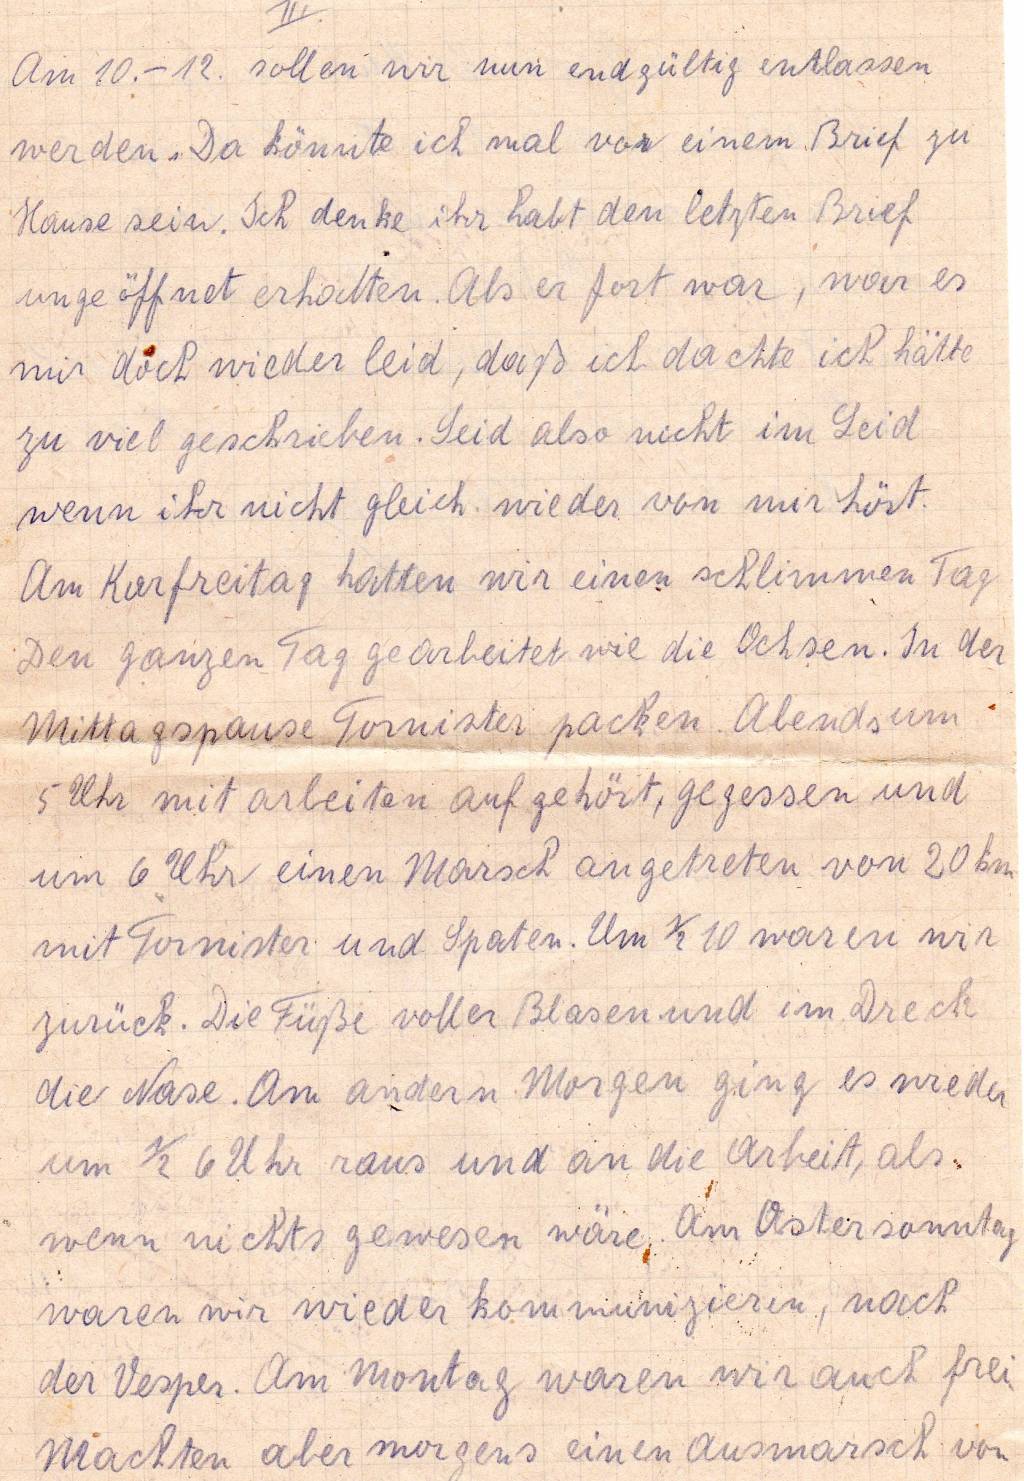 III.
Am 10.–12. sollen wir nun endgültig entlassen
werden. Da könnte ich mal vor einem Brief zu
Hause sein. Ich denke ihr habt den letzten Brief
ungeöffnet erhalten. Als er fort war, war es
mir doch wieder leid, daß ich dachte ich hätte
zu viel geschrieben. Seid also nicht im Leid
wenn ihr nicht gleich wieder von mir hört.
Am Karfreitag hatten wir einen schlimmen Tag
Den ganzen Tag gearbeitet wie die Ochsen. In der
Mittagspause Tornister packen. Abends um
5 Uhr mit arbeiten aufgehört, gegessen und
um 6 Uhr einen Marsch angetreten von 20 km
mit Tornister und Spaten. Um ½ 10 waren wir
zurück. Die Füße voller Blasen und im Dreck
die Nase. Am andern Morgen ging es wieder
um ½ 6 Uhr raus und an die Arbeit, als
wenn nichts gewesen wäre. Am Ostersonntag
waren wir wieder kommunizieren, nach
der Vesper. Am Montag waren wir auch frei
Machten aber morgens einen Ausmarsch von